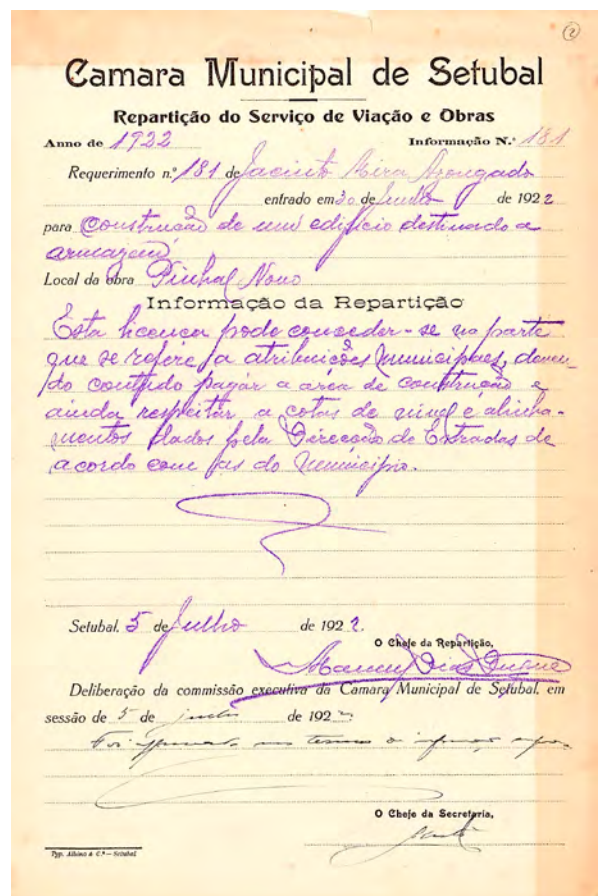 2
Camara Municipal de Setubal
Repartição do Serviço de Viação e Obras
Anno de 1922 Informação N.º 181
Requerimento n.º 181 de Jacinto
entrado em 30 de Junho de 1922
para Construcão de um edificio destinado a
armazem
Local da obra Pinhal Novo
Informação da Repartição
Esta licença pode conceder-se na parte
que se refere a atribuições municipaes, deven-
do contudo pagar a area de construcão e
ainda respeitar a cotas de nivel e alinha-
mentos dados pela Direcção de Estradas de
acordo com as do Municipio.
Setubal, 5 de Julho de 1922.
O Chefe da Repartição,
Deliberação da commissão executiva da Camara Municipal de Setubal, em
sessão de 5 de de 192
Foi nos termos
O Chefe da Secretaria,
Typ. Albino & C.ª — Setubal